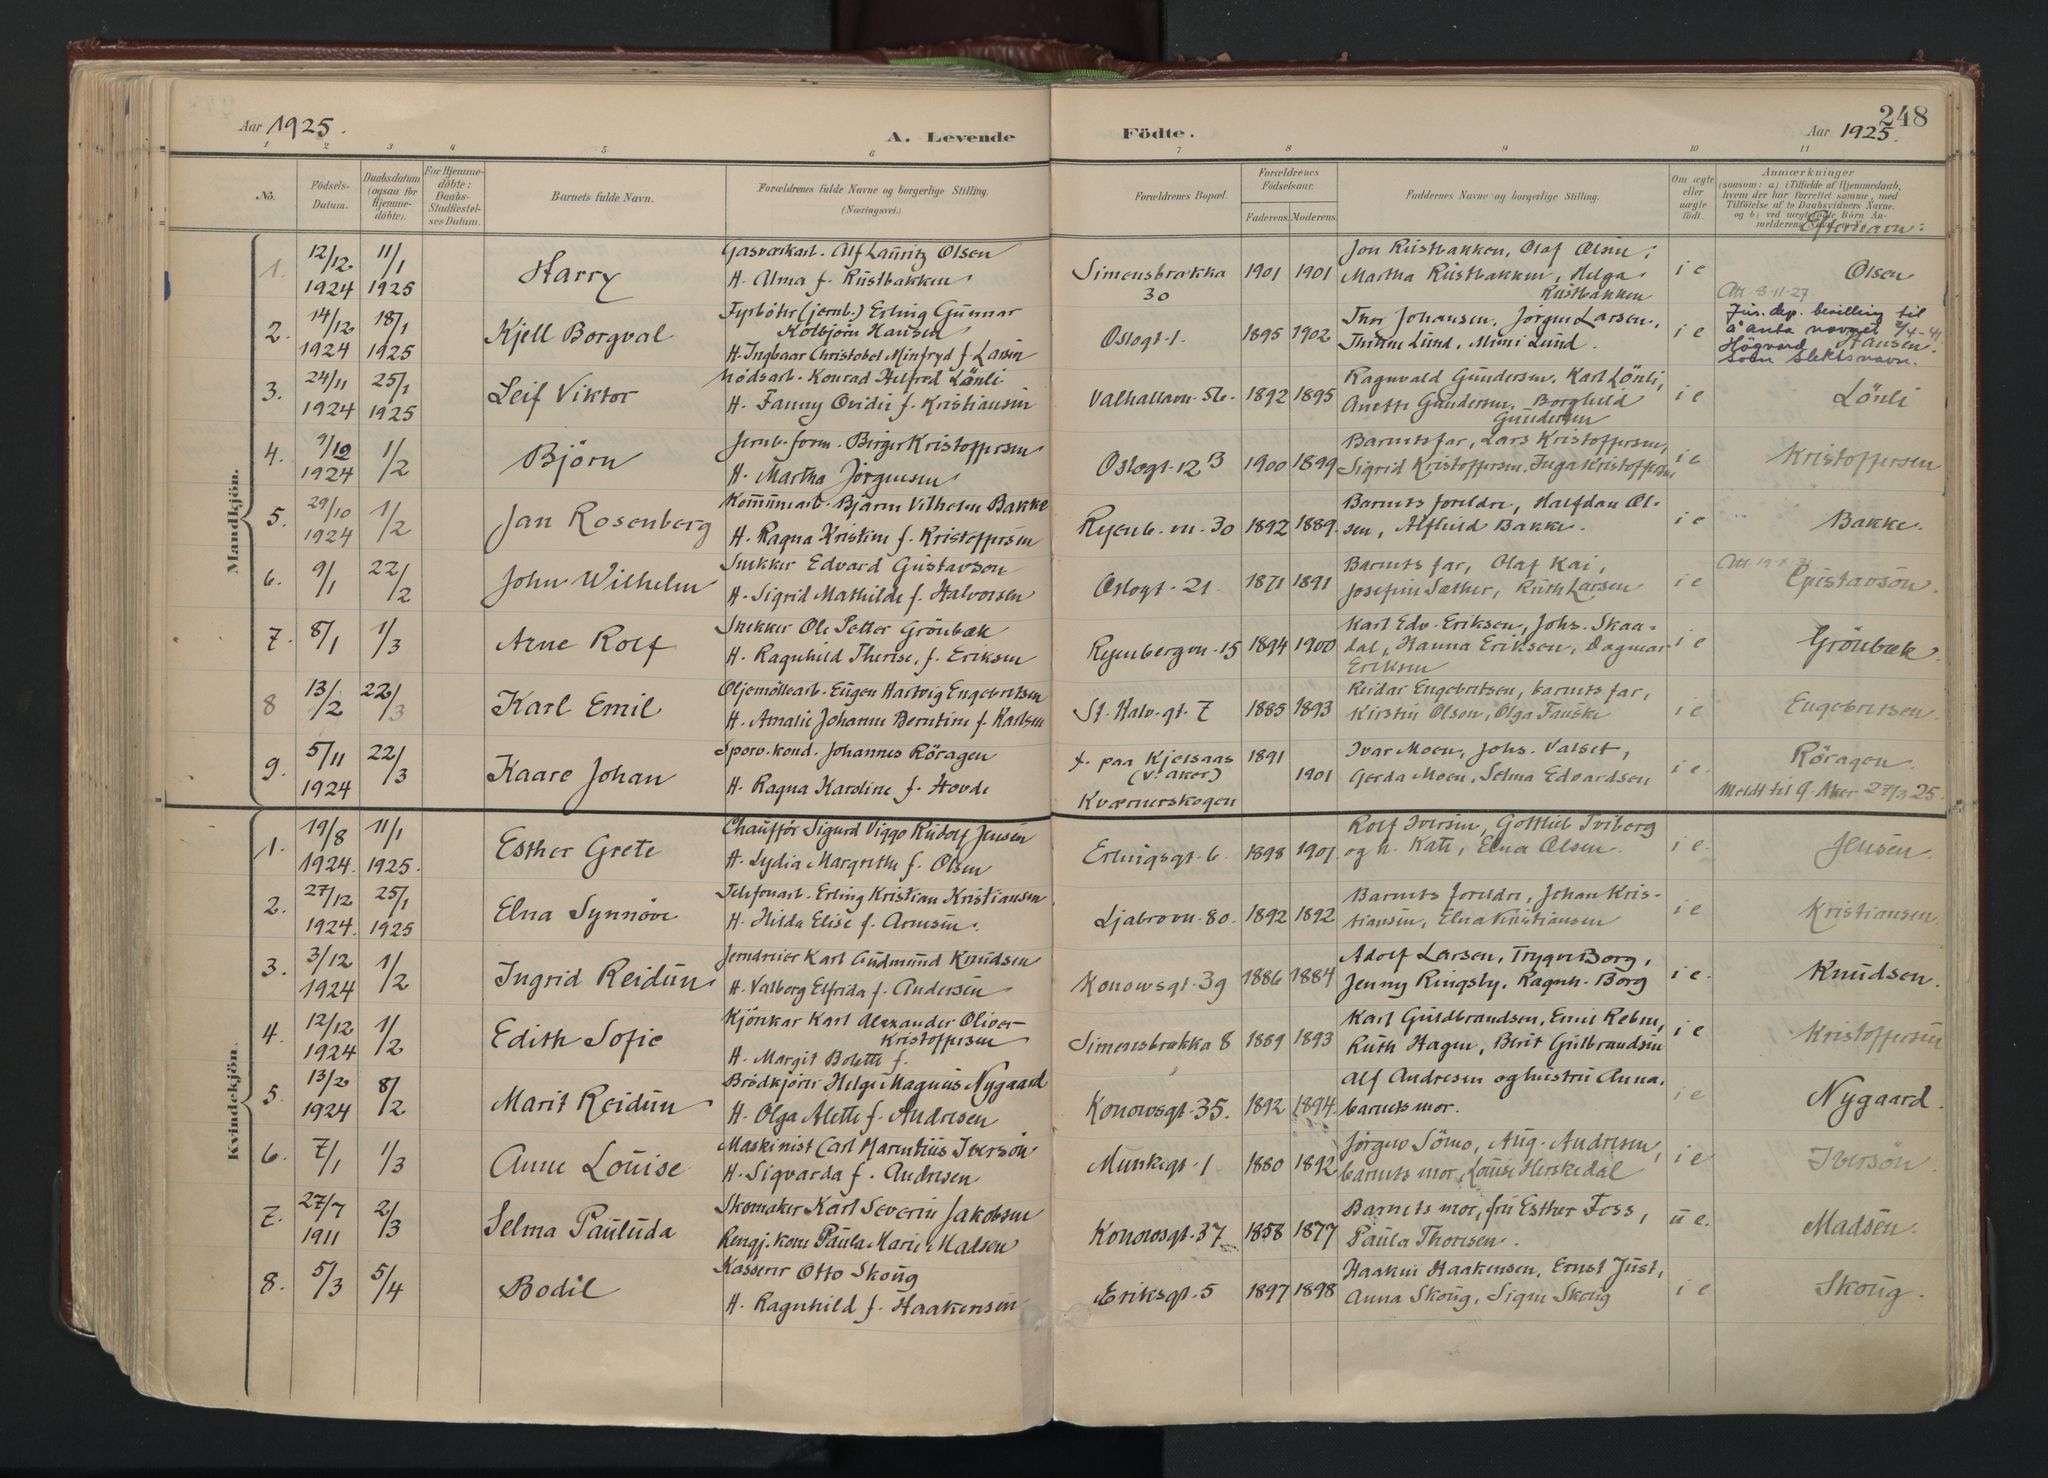 248
Aar 1925.
A. Levende Födte.
Aar 1925.
1 2 3 4 5 6 7 8 9 10 11
No.
Födsels-Datum.
Daabsdatum (ogsaa for Hjemme-döbte).
For Hjemme-döbte: Daabs-Stadfæstel-ses Datum.
Barnets fulde Navn.
Forældrenes fulde Navne og borgerlige Stilling.
(Næringsvei.)
Forældrenes Bopæl.
Forældrenes Födselsaar.
Faderens. Moderens.
Faddernes Navne og borgerlige Stilling.
Om ægte eller uægte födt.
Anmærkninger
(saasom: a) i Tilfælde af Hjemmedaab,
hvem der har forrettet samme, med
Tilföielse af to Daabsvidners Navne.
og b) ved uægtefödte Börn An-
Efternavn:
Mandkjön.
1. 12/12 1924 11/1 1925 Harry
Gasværkarb. Alf Lauritz Olsen
H. Alma f. Rustbakken
Simensbrækka 30 1901 1901
Jon Rustbakken, Olaf Olsen;
Martha Rustbakken, Helga
Rustbakken
i e Olsen
2. 14/12 1924 18/1 1925 Kjell Borgval
Fyrböter (jernb.) Erling Gunnar
Kolbjörn Hansen
H. Ingbaar Christobel Minfryd f. Larsen
Oslogt. 1. 1895 1902
Thor Johansen, Jörgen Larsen,
Thrine Lund, Mimi Lund.
i e Att. 8-11-27
Jus. dep. bevilling til
å anta navnet 2/4-41
Högvard Hansen.
som slektsnavn.
3. 24/11 1924 25/1 1925 Leif Viktor
Nödsarb. Konrad Hilfred Lönli
H. Fanny Ovidie f. Kristiansen
Valhallavn. 56. 1892 1895
Ragnvald Gundersen, Karl Lönli,
Anette Gundersen, Borghild
Gundersen
i e Lönli
4. 9/12 1924 1/2 Björn
Jernb. form. Birger Kristoffersen
H. Martha Jörgensen
Oslogt. 12 B 1900 1899
Barnets far, Lars Kristoffersen,
Sigrid Kristoffersen, Inga Kristoffersen
i e Kristoffersen
5. 29/10 1924 1/2 Jan Rosenberg
Kommunearb. Bjarne Vilhelm Bakke
H. Ragna Kristine f. Kristoffersen
Ryenb. vn. 30 1892 1889
Barnets foreldre, Halfdan Ol-
sen, Alfhild Bakke.
i e Bakke.
6. 9/1 22/2 John Wilhelm
Snekker Edvard Gustavson
H. Sigrid Mathilde f. Halvorsen
Oslogt. 21. 1871 1891
Barnets far, Olaf Kai,
Josefine Sæther, Ruth Larsen
i e Gustavsön.
7. 8/1 1/3 Arne Rolf
Snekker Ole Petter Grönbæk
H. Ragnhild Therese, f. Eriksen
Ryenbergvn. 15 1894 1900
Karl Edv. Eriksen, Johs. Skaa-
dal, Hanna Eriksen, Dagmar
Eriksen
i e Grönbæk.
8 13/2 22/3 Karl Emil
Oljemöllearb. Eugen Hartvig Engebretsen
H. Amalie Johanne Berntine f. Karlsen
St. Halv. gt. 7 1885 1893
Reidar Engebretsen, barnets far,
Kirstin Olson, Olga Fauske
i e Engebretsen.
9. 5/11 1924 22/3 Kaare Johan
Sporv. kond. Johannes Röragen
H. Ragna Karoline f. Hovde
f. paa Kjelsaas
(V. Aker)
Kværnerskogen
1891 1901
Ivar Moen, Johs. Valset,
Gerda Moen, Selma Edvardsen
i e. Röragen.
Meldt til V. Aker 27/3 25.
Kvindekjön.
1. 19/8 1924. 11/1 1925. Esther Grete
Chaufför Sigurd Viggo Rudolf Jensen
H. Lydia Margrethe f. Olsen
Erlingsgt. 6. 1898 1901
Rolf Iversen, Gottlieb Tviberg
og h. Kate, Elna Olsen.
i e. Jensen.
2. 27/12 1924. 25/1 1925 Elna Synnöve
Telefonarb. Erling Kristian Kristiansen
H. Hilda Elise f. Arnesen.
Ljabrovn. 80. 1892 1892
Barnets foreldre, Johan Kris-
tiansen, Elna Kristiansen
i e Kristiansen.
3. 3/12 1924 1/2 Ingrid Reidun
Jerndreier Karl Gudmund Knudsen
H. Valborg Elfrida f. Andersen
Konowsgt. 39 1886 1884
Adolf Larsen, Trygve Borg,
Jenny Ringsby, Ragnh. Borg
i e. Knudsen.
4. 12/12 1924 1/2 Edith Sofie
Kjörekar Karl Alexander Oliver
Kristoffersen
H. Margit Bolette f.
Simensbrækka 8 1889 1893
Karl Guldbrandsen, Emil Rebne,
Ruth Hagen, Berit Gulbrandsen
i e Kristoffersen
5. 13/12 1924 8/2 Marit Reidun
Brödkjörer Helge Magnus Nygaard
H. Olga Alette f. Andresen
Konowsgt. 35. 1892 1894
Alf Andresen og hustru Anna,
barnets mor.
i e Nygaard.
6. 7/1 1/3 Anne Louise
Maskinist Carl Marentius Iversön
H. Sigvarda f. Andresen
Munkegt. 1 1880 1892
Jörgen Sömo, Aug. Andresen,
barnets mor, Louise Herskedal
i e Iversön.
7. 27/7 1911 2/3 Selma Pauluda
Skomaker Karl Severin Jakobsen
Rengj. kone Paula Marie Madsen
Konowsgt. 37 1858 1877
Barnets mor, fru Esther Foss,
Paula Thoresen.
u e. Madsen.
8. 5/3 5/4 Bodil
Kasserer Otto Skoug
H. Ragnhild f. Haakensen
Eriksgt. 5 1897 1898
Haakin Haakensen, Ernst Just,
Anna Skoug, Signe Skoug
i e Skoug.